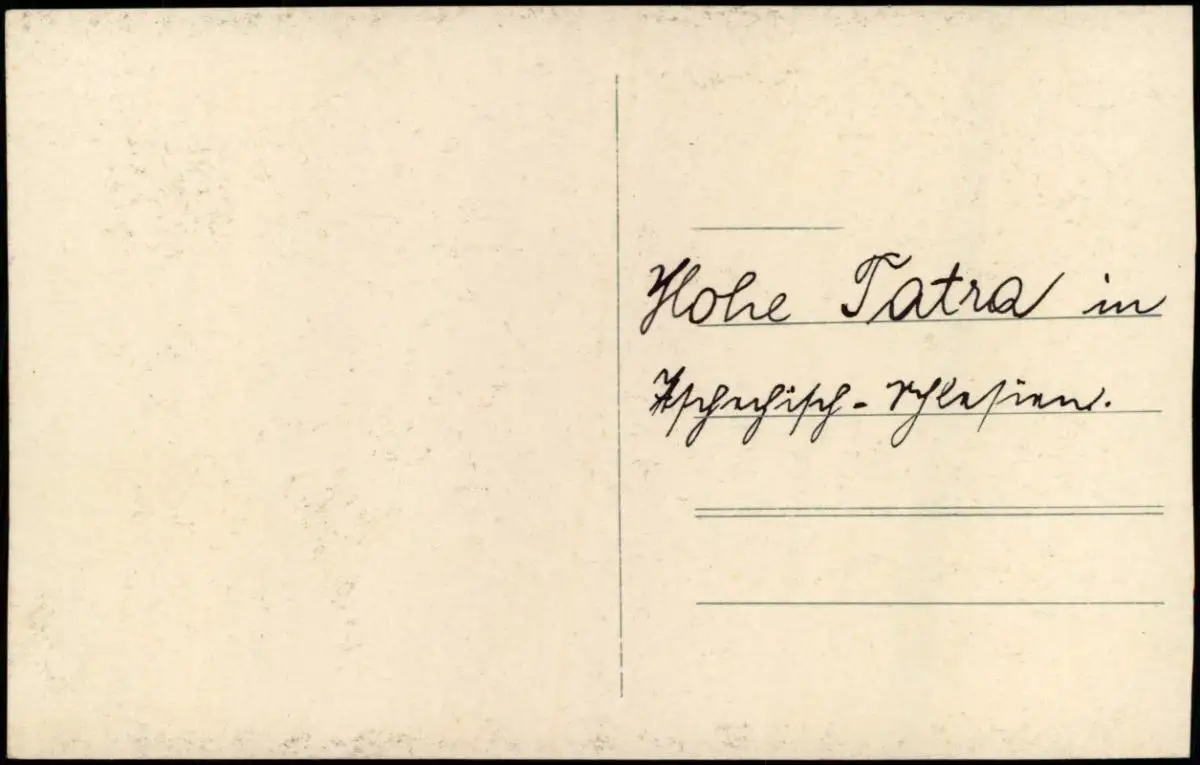 Hohe Tatra in
Tschechisch-Schlesien.